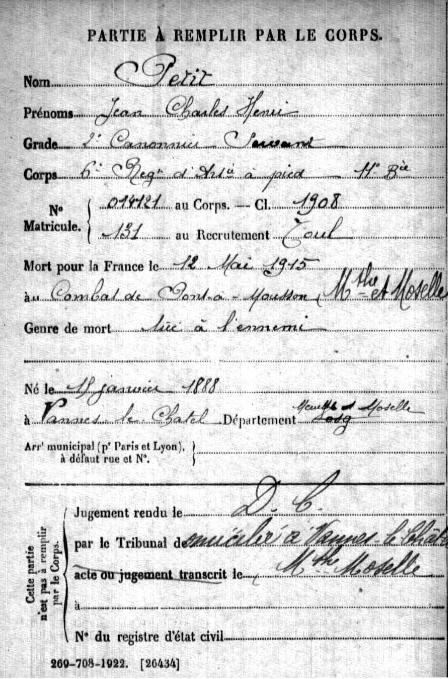 PARTIE À REMPLIR PAR LE CORPS.
Nom Petit
Prénoms Jean Charles Henri
Grade 2e Canonnier Servant
Corps 6e Regt d'Artie à pied 11e Bie
Nos Matricule. { 014121 au Corps. — Cl. 1908
131 au Recrutement Toul
Mort pour la France le 12 Mai 1915
au Combat de Pont-à-Mousson, Mthe et Moselle
Genre de mort tué à l'ennemi
Né le 15 janvier 1888
à Vannes le Chatel Département Meurthe et Moselle
Arrt municipal (pr Paris et Lyon), à défaut rue et No. }
Cette partie n'est pas à remplir par le Corps.
Jugement rendu le D. C.
par le Tribunal de à Vannes le Chât
acte ou jugement transcrit le Mthe Moselle
à
No du registre d'état civil
269-708-1922. [26434]